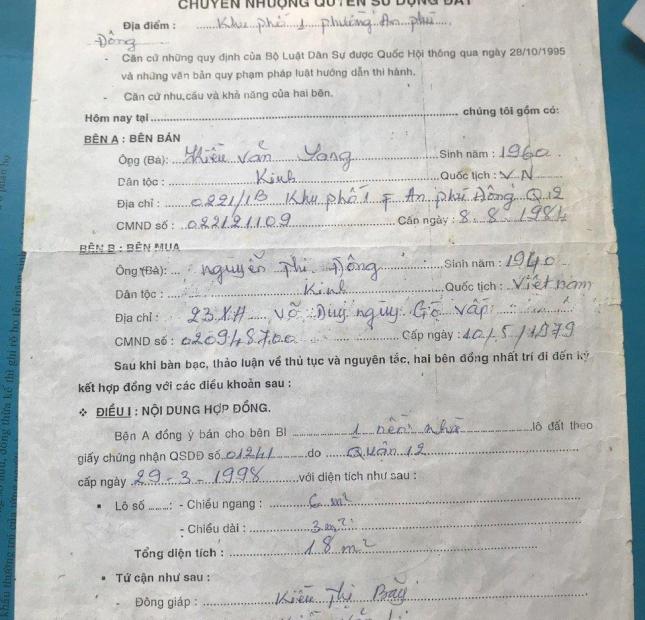 CHUYỂN NHƯỢNG QUYỀN SỬ DỤNG ĐẤT
Địa điểm : Khu phố 1 phường An phú
Đông
- Căn cứ những quy định của Bộ Luật Dân Sự được Quốc Hội thông qua ngày 28/10/1995
và những văn bản quy phạm pháp luật hướng dẫn thi hành.
- Căn cứ nhu cầu và khả năng của hai bên.
Hôm nay tại chúng tôi gồm có:
BÊN A : BÊN BÁN
Ông (Bà): Văn Sinh năm : 1960
Dân tộc : Kinh Quốc tịch : VN
Địa chỉ : 0221/1B Khu phố 1 F An phú Đông Q12
CMND số : 022121109 Cấp ngày : 8.8.1984
BÊN B : BÊN MUA
Ông (Bà): nguyễn Thị Đông Sinh năm : 1940
Dân tộc : Kinh Quốc tịch : Việt nam
Địa chỉ : 23 Võ Duy nguy Gò Vấp
CMND số : 020948700 Cấp ngày : 10/5/1979
Sau khi bàn bạc, thảo luận về thủ tục và nguyên tắc, hai bên đồng nhất trí đi đến ký
kết hợp đồng với các điều khoản sau :
❖ ĐIỀU I : NỘI DUNG HỢP ĐỒNG.
Bên A đồng ý bán cho bên BI 1 nền nhà lô đất theo
giấy chứng nhận QSDĐ số 01241 do Quận 12
cấp ngày 29-3-1998 với diện tích như sau :
• Lô số : - Chiều ngang : 6 m²
- Chiều dài : 3 m²
Tổng diện tích : 18 m²
• Tứ cận như sau :
- Đông giáp : Kiều Thị Bảy